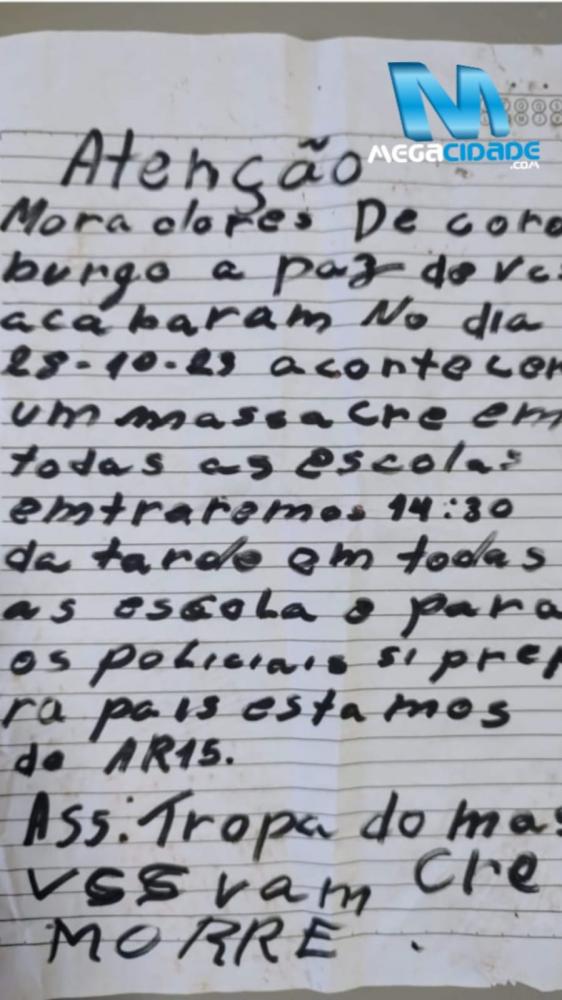 MEGACIDADE
.COM
Atenção
Moradores De coro
burgo a paz de vcs
acabaram No dia
23-10-23 acontecer
um massacre em
todas as escolas
emtraremos 14:30
da tarde em todas
as escola e para
os policiais si prep
ra pais estamos
de AR15.
Ass: Tropa do mas
cre
vss vam
MORRE.